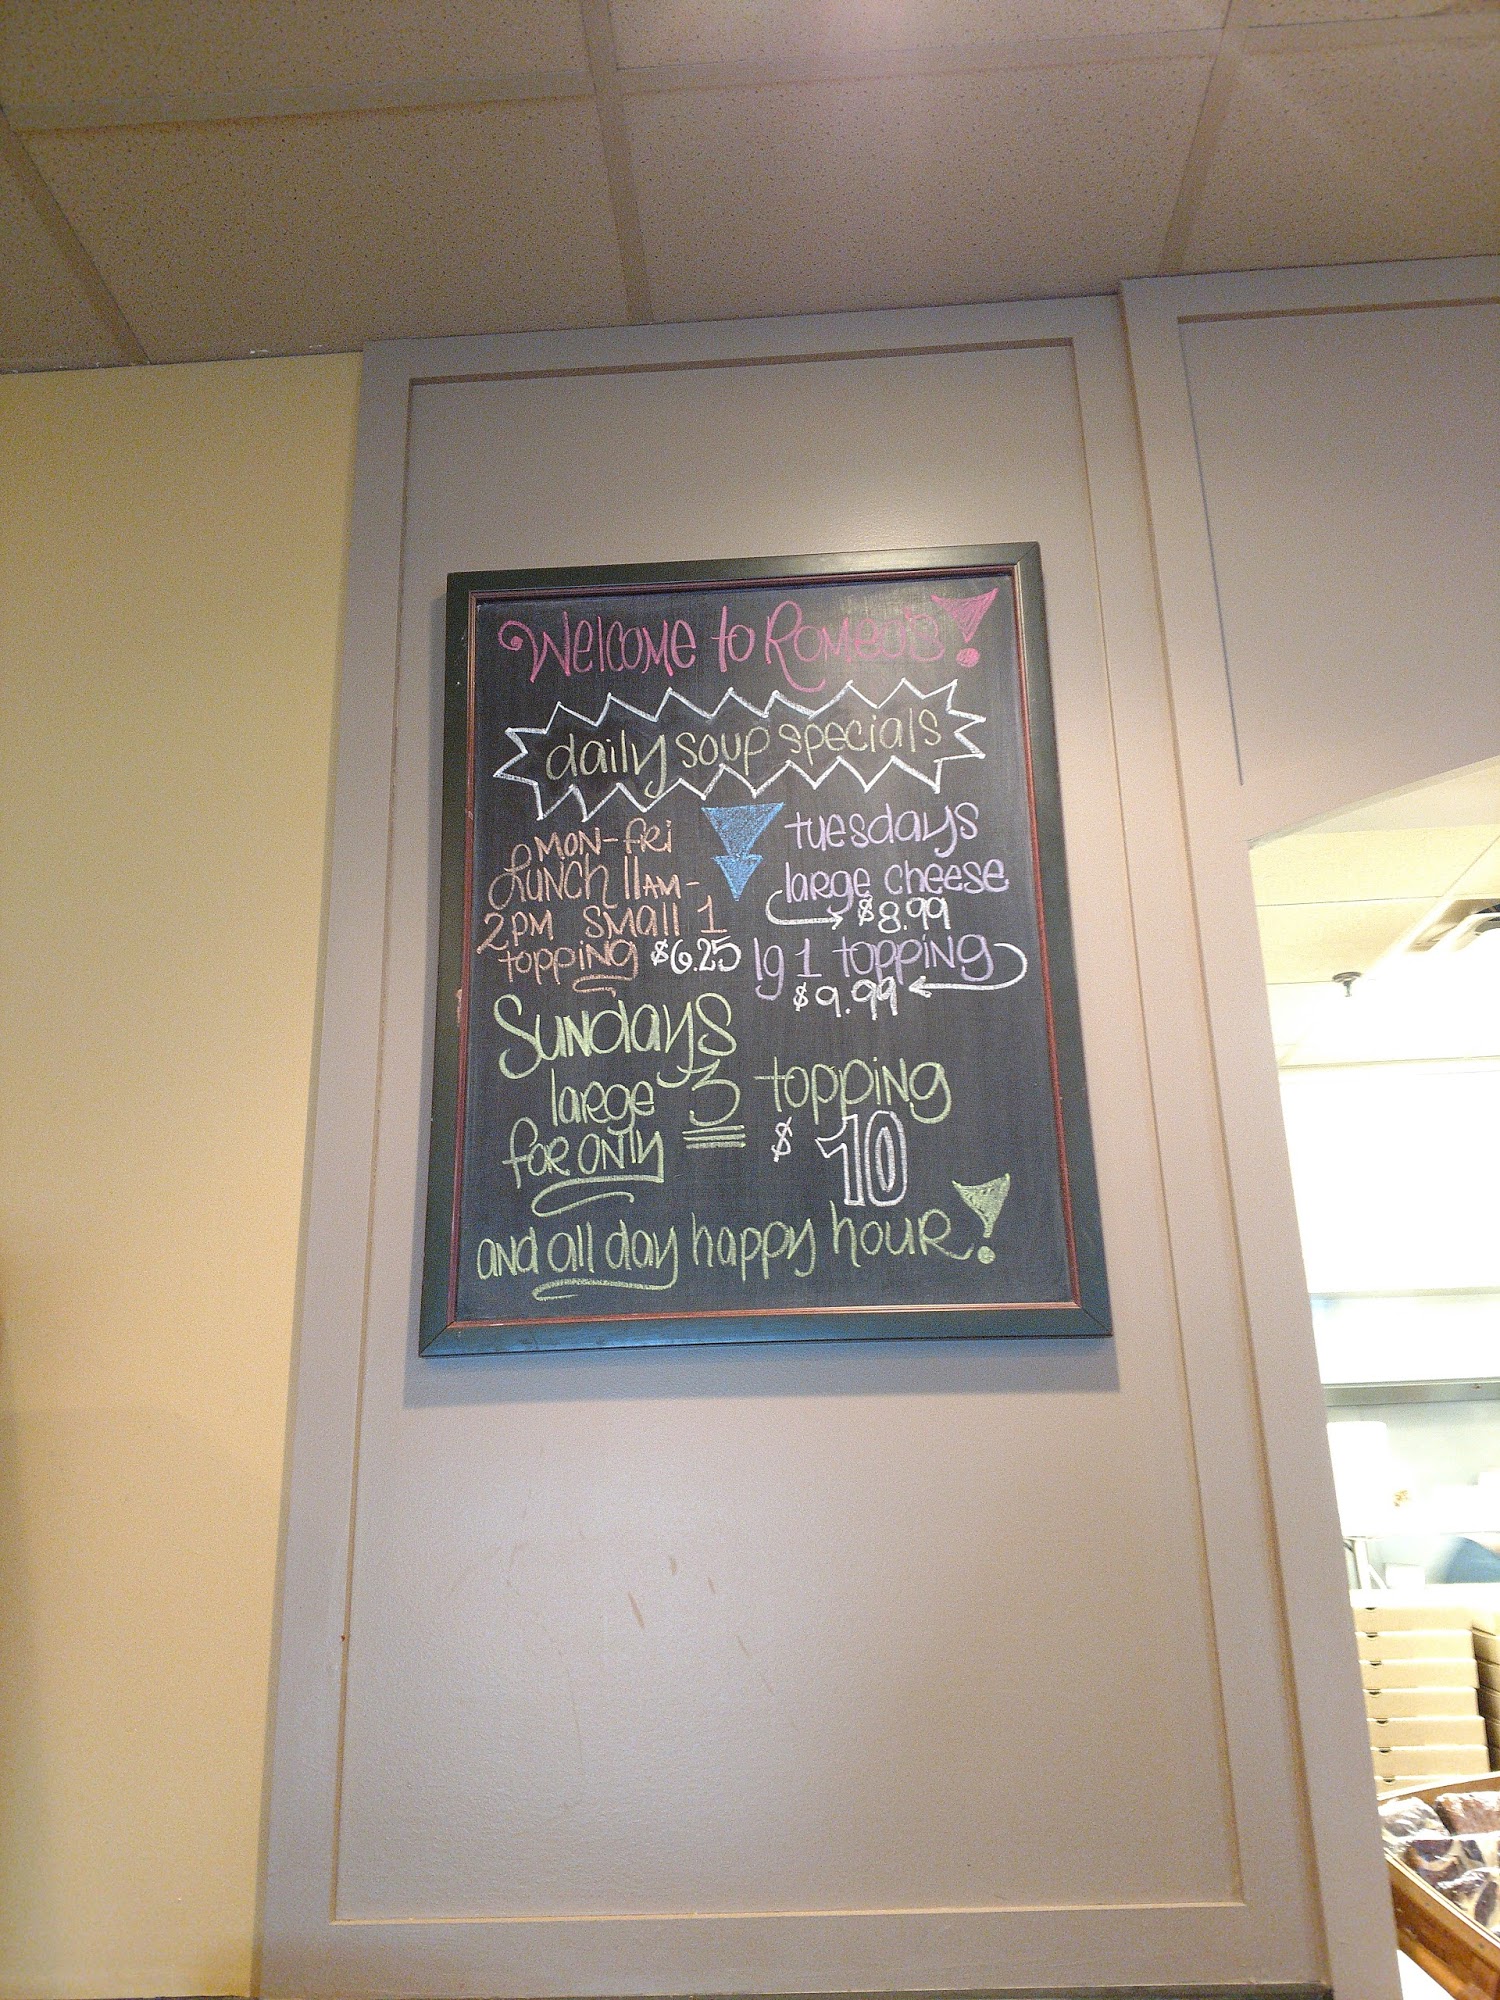 Welcome to Romeo's!
daily soup specials
Mon-Fri
Lunch 11am-
2pm small 1
topping $6.25
tuesdays
large cheese
$8.99
lg 1 topping
$9.99
Sundays
large 3 topping
for only $10
and all day happy hour!